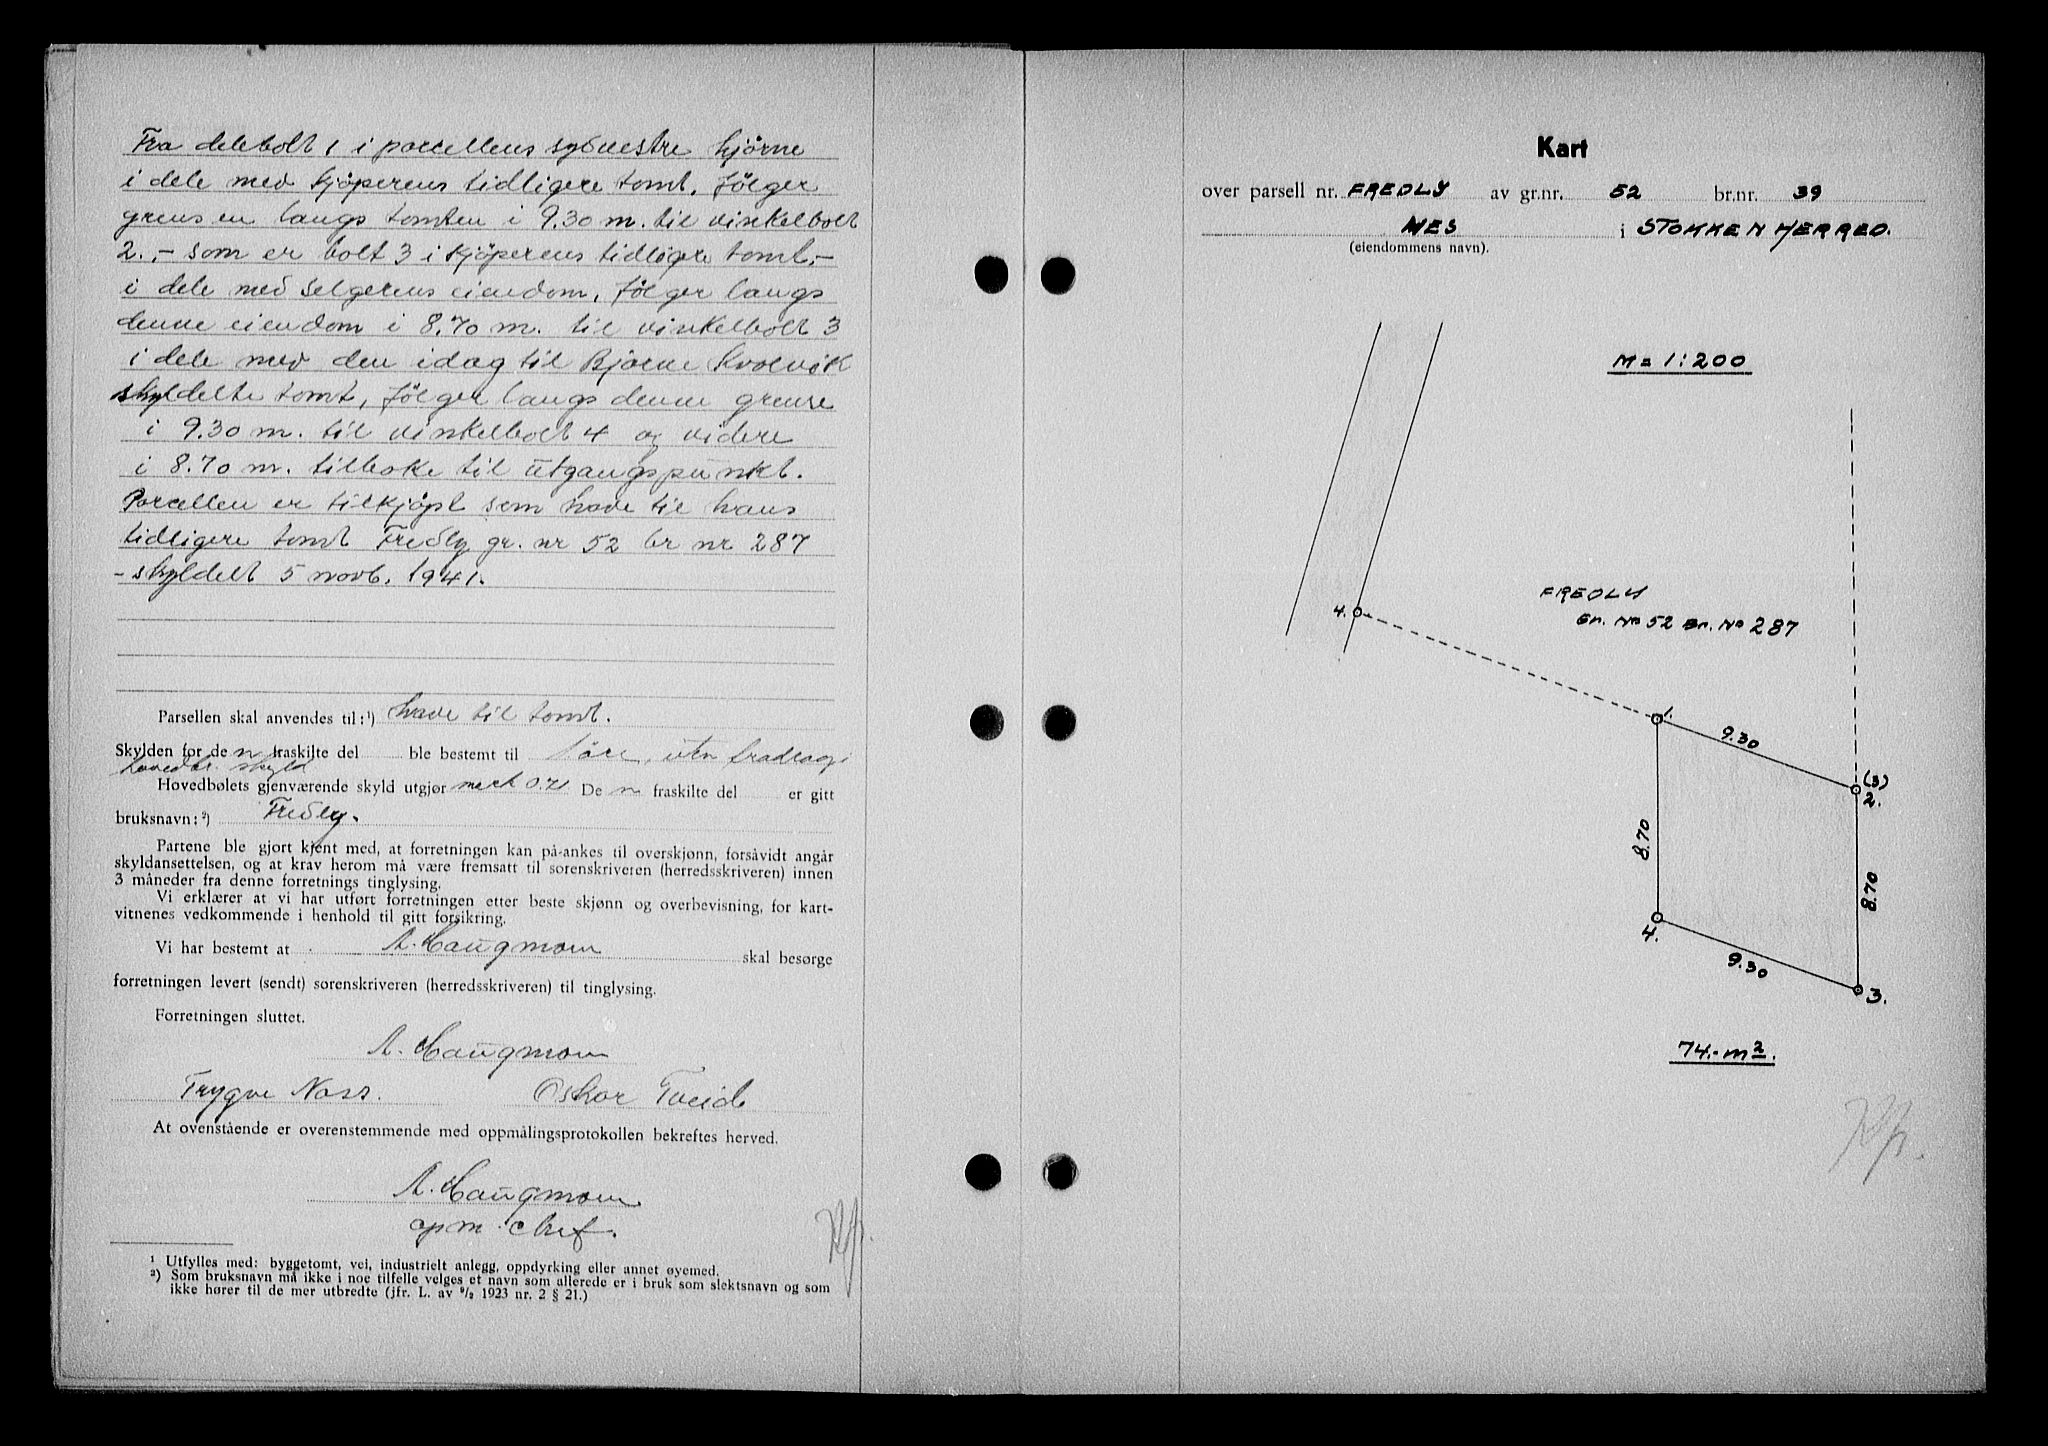 Fra delebolt 1 i parcellens sydvestre hjørne
i dele med kjøperens tidligere tomt, følger
grensen langs tomten i 9.30 m. til vinkelbolt
2., - som er bolt 3 i kjøperens tidligere tomt, -
i dele med selgerens eiendom, følger langs
denne eiendom i 8.70 m. til vinkelbolt 3
i dele med den idag til Bjarne
skyldelte tomt, følger langs denne grense
i 9.30 m. til vinkelbolt 4 og videre
i 8.70 m. tilbake til utgangspunkt.
Parcellen er tilkjøpt som have til hans
tidligere tomt Fredly gr. nr 52 br nr 287
- skyldelt 5 novb. 1941.
Parsellen skal anvendes til: ¹) have til tomt.
Skylden for de n fraskilte del ble bestemt til 1 øre, uten fradrag i
hovedbr. skyld
Hovedbølets gjenværende skyld utgjør mark 0.71 De n fraskilte del er gitt
bruksnavn: ²) Fredly.
Partene ble gjort kjent med, at forretningen kan på-ankes til overskjønn, forsåvidt angår
skyldansettelsen, og at krav herom må være fremsatt til sorenskriveren (herredsskriveren) innen
3 måneder fra denne forretnings tinglysing.
Vi erklærer at vi har utført forretningen etter beste skjønn og overbevisning, for kart-
vitnenes vedkommende i henhold til gitt forsikring.
Vi har bestemt at A. Haugmoen skal besørge
forretningen levert (sendt) sorenskriveren (herredsskriveren) til tinglysing.
Forretningen sluttet.
A. Haugmoen
Trygve Næss. Oskar Tveide
At ovenstående er overenstemmende med oppmålingsprotokollen bekreftes herved.
A. Haugmoen
opm. chef.
¹ Utfylles med: byggetomt, vei, industrielt anlegg, oppdyrking eller annet øyemed.
²) Som bruksnavn må ikke i noe tilfelle velges et navn som allerede er i bruk som slektsnavn og som
ikke hører til de mer utbredte (jfr. L. av ⁹/₂ 1923 nr. 2 § 21.)
Kart
over parsell nr. FREDLY av gr.nr. 52 br.nr. 39
NES i STOKKEN HERRED.
(eiendommens navn).
M = 1:200
FREDLY
Gr. No 52 Br. No 287
4.
1.
9.30
(3)
2.
8.70
8.70
4.
9.30
3.
74.- m²